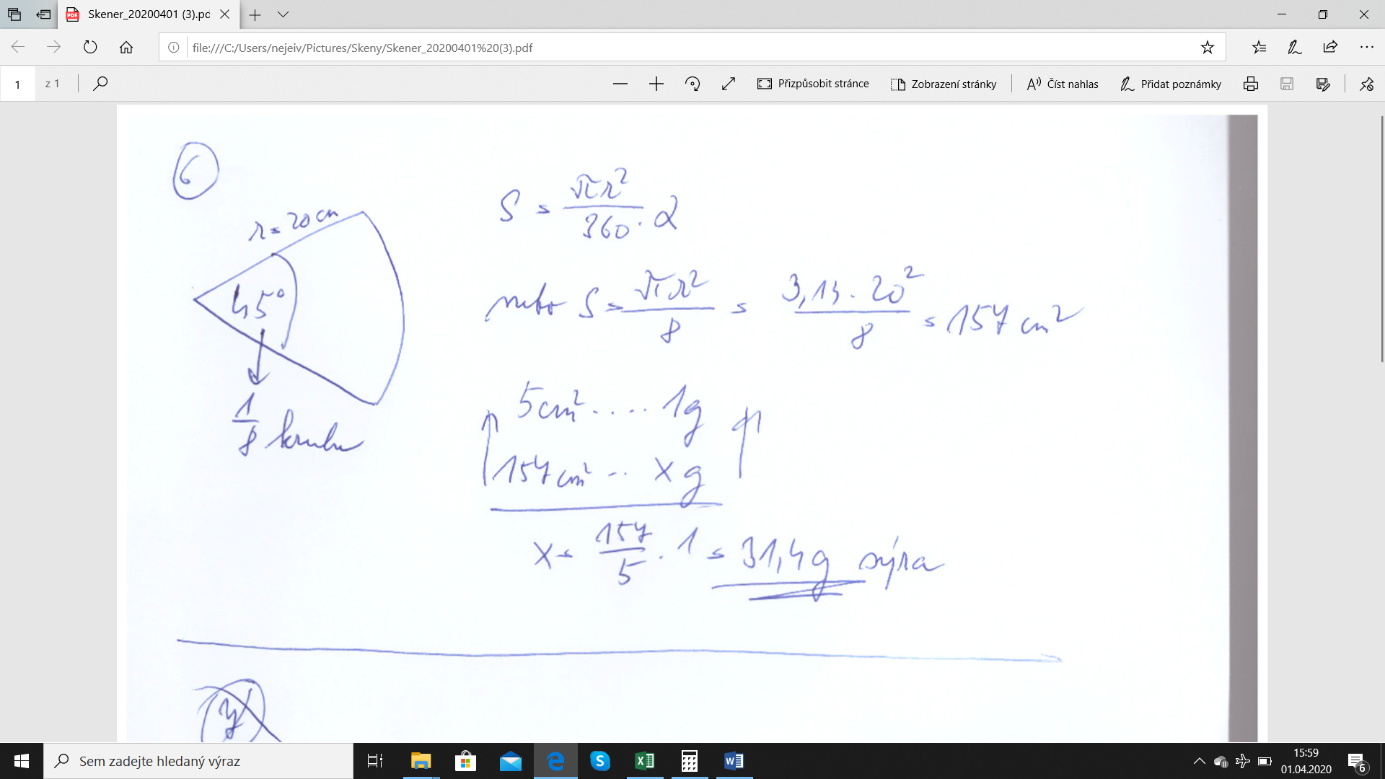 Skener_20200401 (3).pd
file:///C:/Users/nejeiv/Pictures/Skeny/Skener_20200401%20(3).pdf
1 z 1 Přizpůsobit stránce Zobrazení stránky Číst nahlas Přidat poznámky
6
r = 20 cm
45°
1/8 kruhu
S = πr²/360 · α
nebo S = πr²/8 = 3,14 · 20²/8 = 157 cm²
5 cm² .... 1g
157 cm² .. x g
x = 157/5 · 1 = 31,4g sýra
Sem zadejte hledaný výraz
15:59
01.04.2020
6